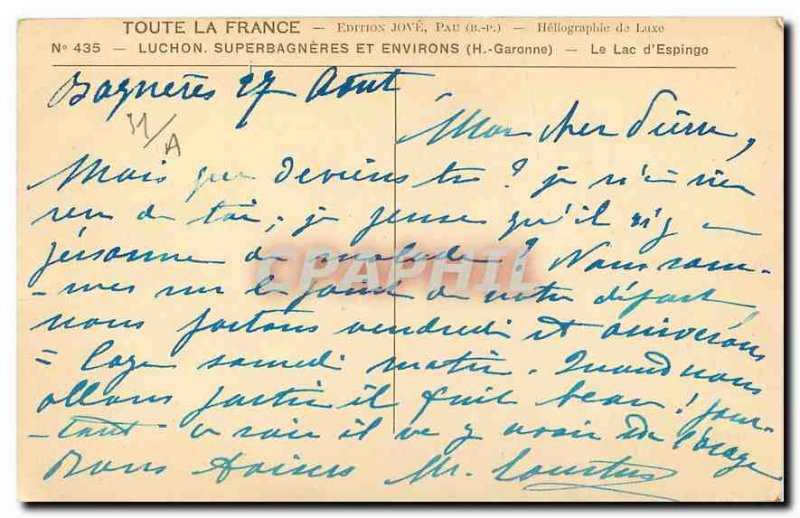 TOUTE LA FRANCE — EDITION JOVÉ, PAU (B.-P.) — Héliographie de Luxe
N° 435 — LUCHON. SUPERBAGNÈRES ET ENVIRONS (H.-Garonne) — Le Lac d'Espingo
Bagnères 27 Aout
31/A
Mon cher Pierre,
Mais que deviens tu? je n'ai rien
reçu de toi; je pense qu'il n'y a
personne de malade? Nous som-
-mes sur le point de notre départ,
nous partons vendredi et arriverons
samedi matin. Quand nous
allons partir il fait beau! pour-
-tant ce soir il va y avoir de l'orage
Bons baisers
CPAPHIL